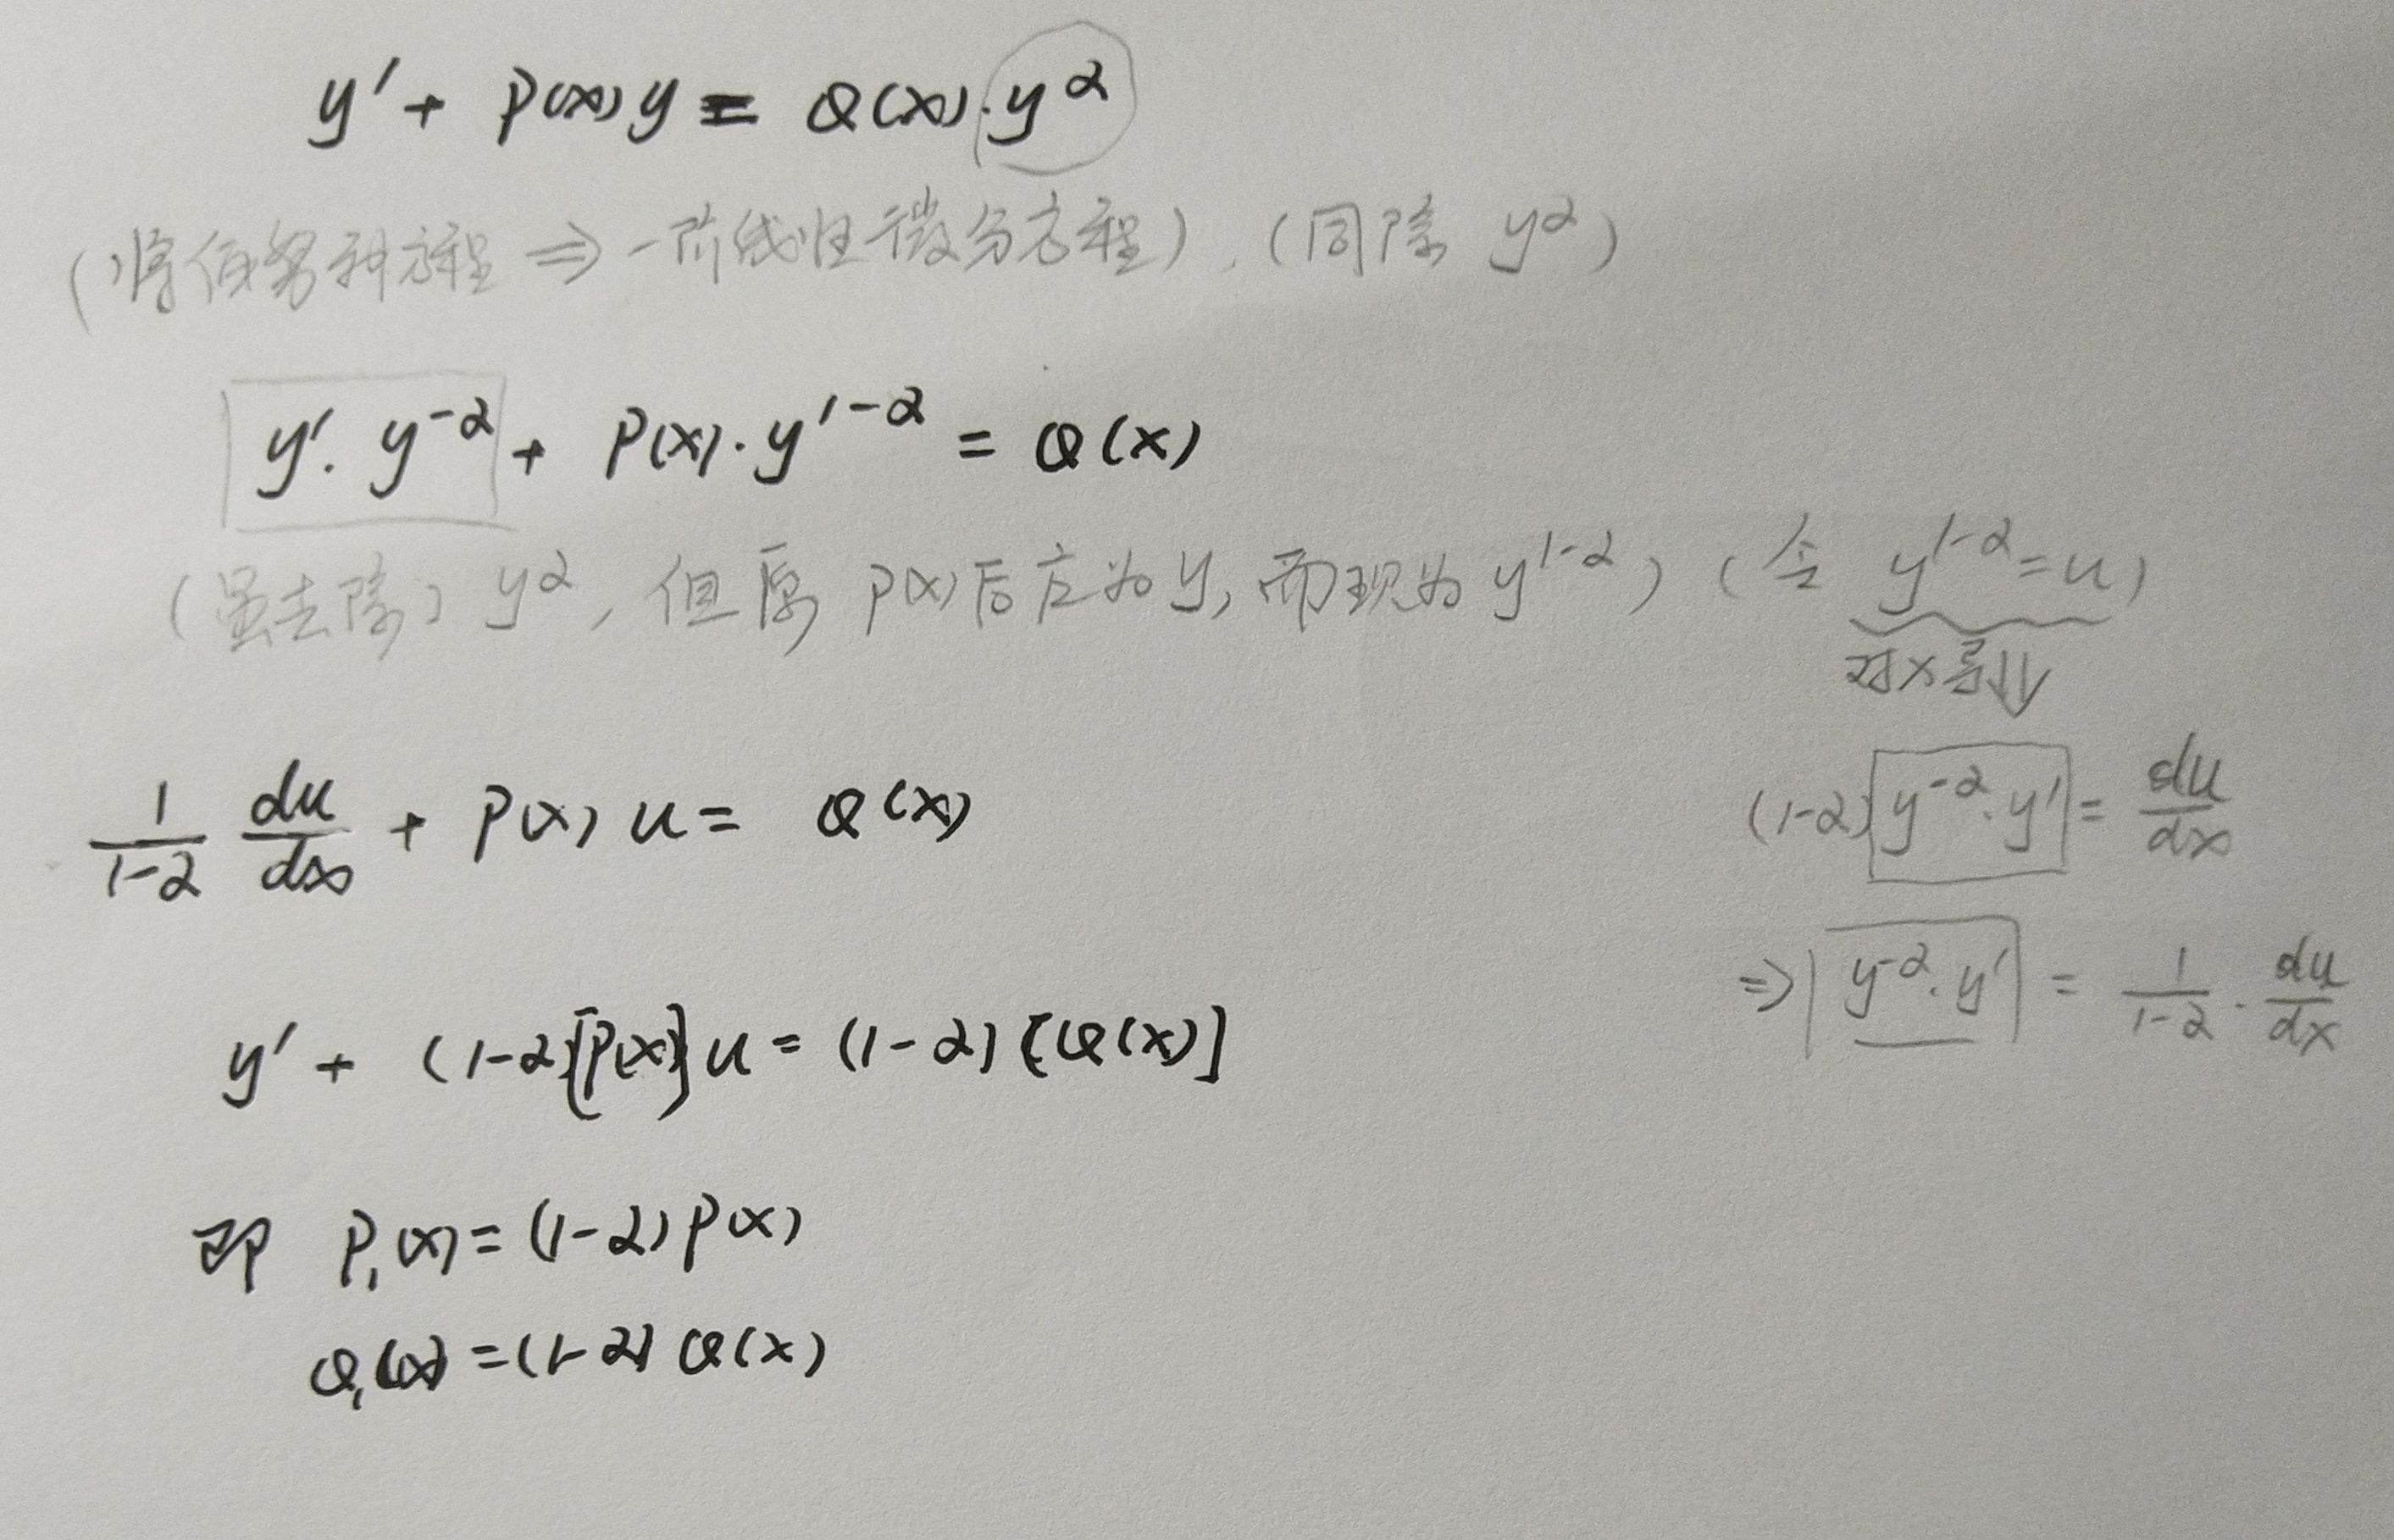 y' + P(x)y = Q(x)·y^α
(将伯努利方程 ⇒ 一阶线性微分方程),(同除 y^α)
y'·y^{-α} + P(x)·y^{1-α} = Q(x)
(虽去除了 y^α, 但原 P(x)后应为y, 而现为 y^{1-α}) (令 y^{1-α}=u)
对x导⇓
1/(1-α) du/dx + P(x) u = Q(x)
(1-α) y^{-α}·y' = du/dx
⇒ y^{-α}·y' = 1/(1-α)·du/dx
y' + (1-α)[P(x)]u = (1-α)[Q(x)]
即 P₁(x) = (1-α)P(x)
Q₁(x) = (1-α)Q(x)